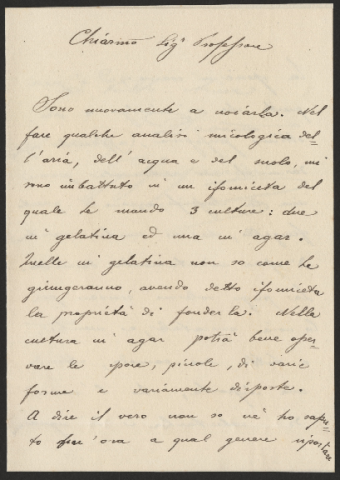 Chiarmo Sigr Professore
Sono nuovamente a noiarla. Nel
fare qualche analisi micologica del=
l'aria, dell'acqua e del suolo, mi
sono imbattuto in un ifomiceta del
quale Le mando 3 culture: due
in gelatina ed una in agar.
Quelle in gelatina non so come Le
giungeranno, avendo detto ifomiceta
la proprietà di fonderla. Nella
cultura in agar potrà bene osser=
vare le spore, piccole, di varie
forme e variamente disposte.
A dire il vero non so nè ho sapu=
to fin'ora a qual genere riportare